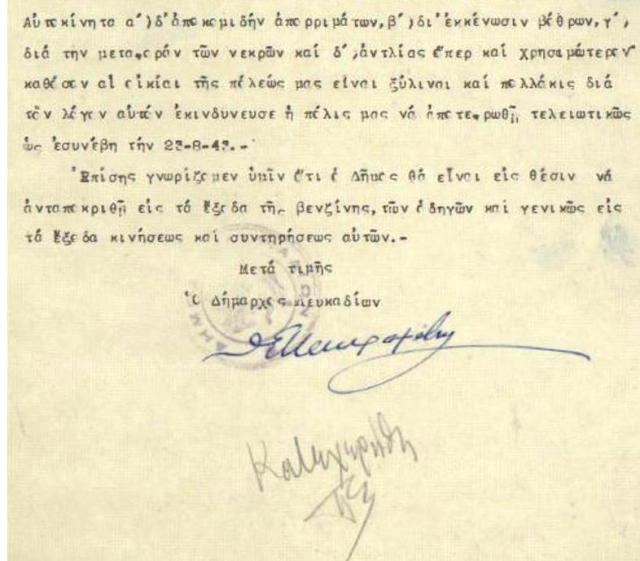 Αὐτοκίνητα α΄)δ'ἀποκομιδήν ἀπορριμάτων,β΄)δι'ἐκκένωσιν βόθρων,γ΄)
διά τήν μεταφοράν τῶν νεκρῶν καί δ΄)ἀντλίας ὅπερ καί χρησιμώτερον
καθόσον αἱ οἰκίαι τῆς πόλεώς μας εἶναι ξύλιναι καί πολλάκις διά
τόν λόγον αὐτόν ἐκινδύνευσε ἡ πόλις μας νά ἀποτεφρωθῇ τελειωτικῶς
ὡς ἐσυνέβη τήν 23-8-43.-
Ἐπίσης γνωρίζομεν ὑμῖν ὅτι ὁ Δῆμος θά εἶναι εἰς θέσιν νά
ἀνταποκριθῇ εἰς τά ἔξοδα τῆς βενζίνης,τῶν ὁδηγῶν καί γενικῶς εἰς
τά ἔξοδα κινήσεως καί συντηρήσεως αὐτῶν.-
Μετά τιμῆς
Ὁ Δήμαρχος Λευκαδίων
Κατεχωρήθη